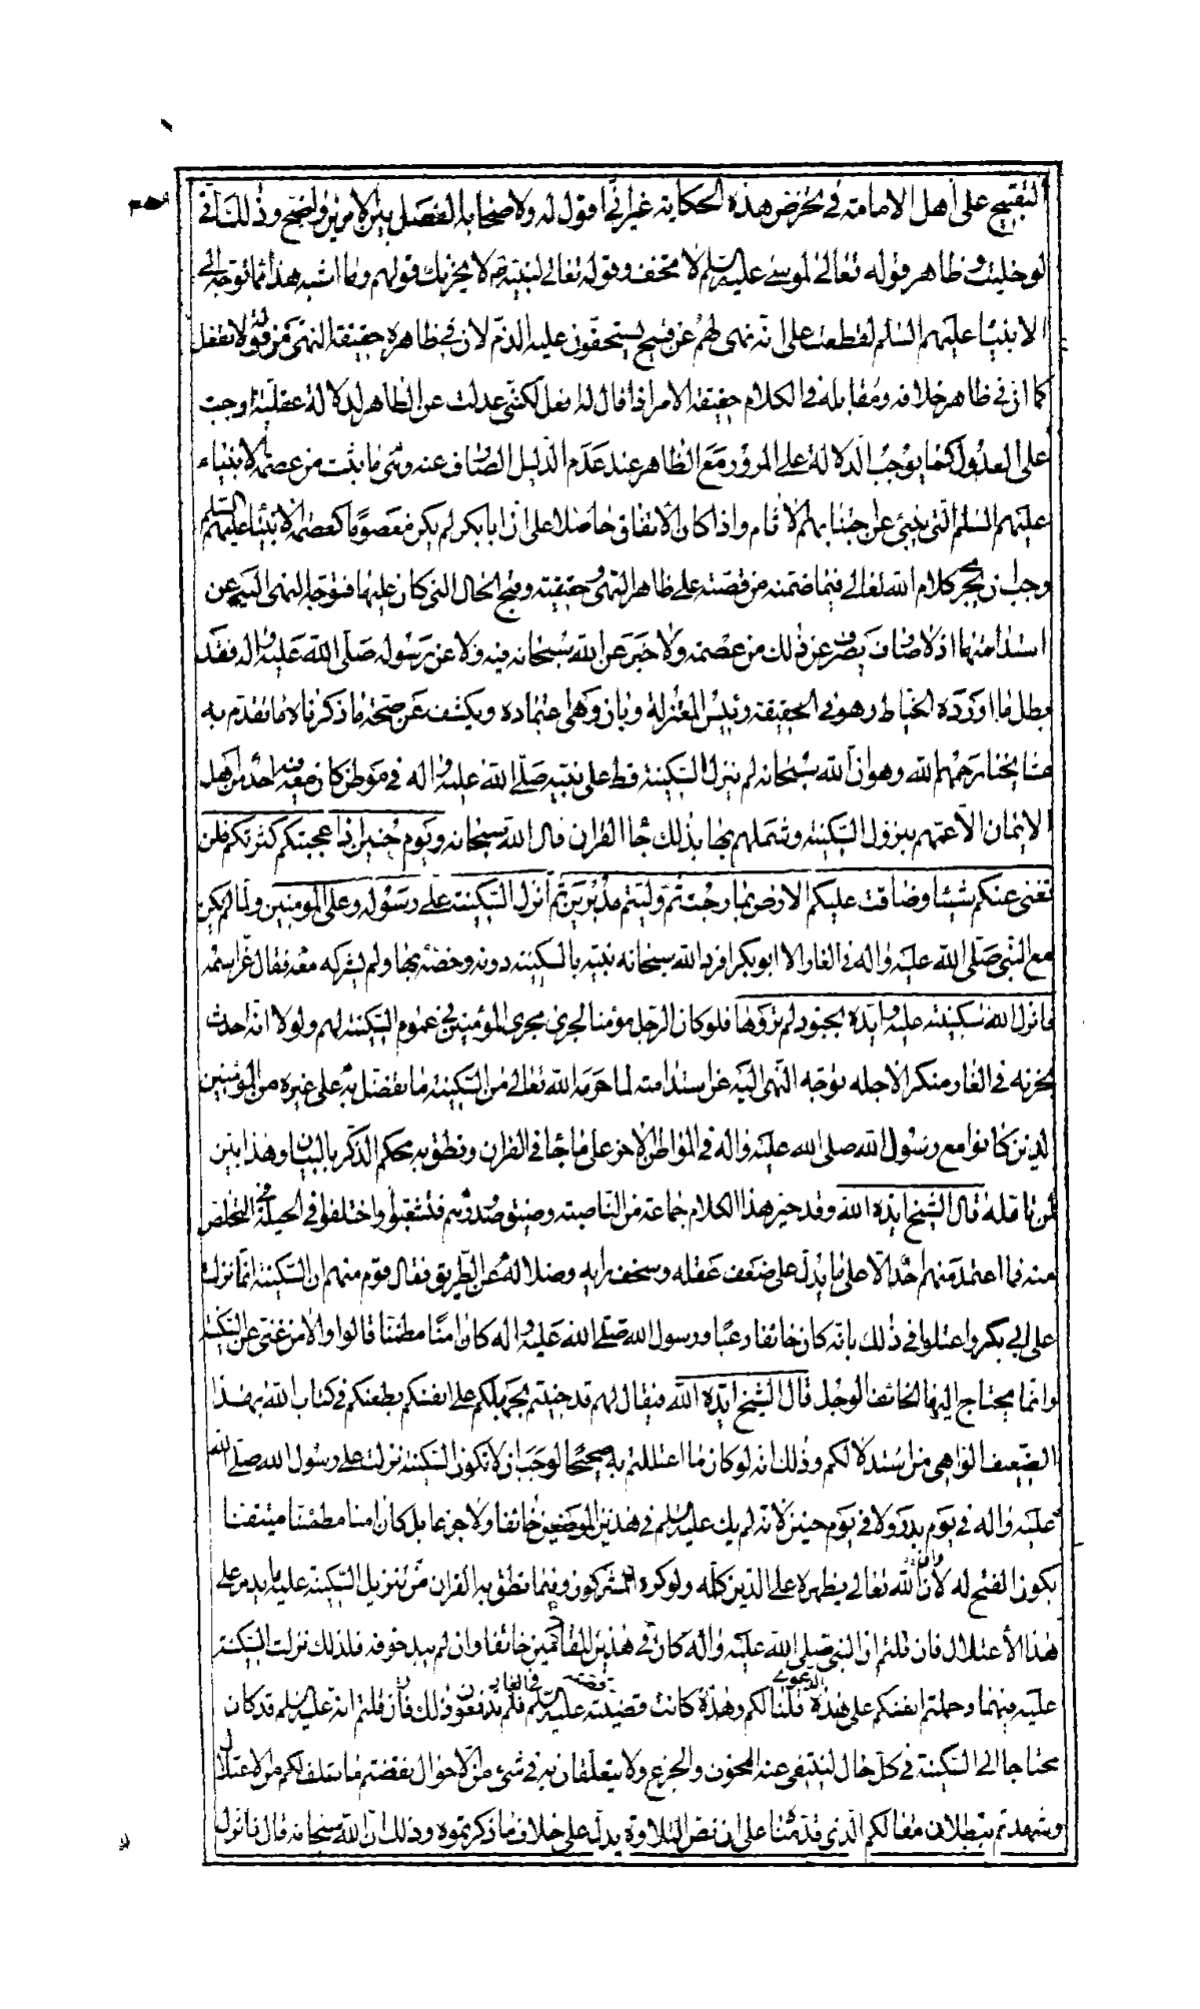 التقبيح على أهل الامامة في تحرض هذه الحكاية غير اني اقول له ولاصحابه الفصل بين الامرين واضح وذلك انني
لو خليت وظاهر قوله تعالى لموسى عليه السلم لا تخف وقوله تعالى لنبيه ص لا يحزنك قولهم وما اشبه هذا مما توجه الى
الانبيا عليهم السلم لقطعت على انه نهى لهم عن قبيح يستحقون عليه الذم لان في ظاهره حقيقة النهى من قوله لا تفعل
كما ان في ظاهر خلافه ومقابله في الكلام حقيقة الامر اذا قال له افعل لكنني عدلت عن الظاهر لدلالة عقلية اوجبت
على العدول كما يوجب الدلالة على المرور مع الظاهر عند عدم الدليل الصارف عنه وهي ما ثبت من عصمة الانبياء
عليهم السلم التي ينبئ عن اجتنابهم الاثام واذا كان الاتفاق حاصلا على ان ابا بكر لم يكن معصوما كعصمة الانبيا عليهم السلم
وجب ان يجرى كلام الله تعالى فيما ضمنه من قصته على ظاهر النهى وحقيقته وقبح الحال التي كان عليها فتوجه النهى اليه عن
استدامتها اذ لا صارف يصرف عن ذلك من عصمته ولا خبر عن الله سبحانه فيه ولا عن رسوله صلى الله عليه واله فقد
بطل ما اورده الخياط وهو في الحقيقة رئيس المعتزلة وبان وهى اعتماده ويكشف عن صحة ما ذكرناه ما تقدم به
مشايخنا رحمهم الله وهو ان الله سبحانه لم ينزل السكينة قط على نبيه صلى الله عليه واله في موطن كان معه فيه احد من اهل
الايمان الا عمهم بنزول السكينة وشملهم بها بذلك جا القران قال الله سبحانه ويوم حنين اذ اعجبتكم كثرتكم فلن
تغنى عنكم شيئا وضاقت عليكم الارض بما رحبت ثم وليتم مدبرين ثم انزل السكينة على رسوله وعلى المؤمنين ولما لم يكن
مع النبي صلى الله عليه واله في الغار الا ابو بكر افرد الله سبحانه نبيه بالسكينة دونه وخصه بها ولم يشركه معه فقال عز اسمه
فانزل الله سكينته عليه وايده بجنود لم تروها فلو كان الرجل مؤمنا لجرى مجرى المؤمنين في عموم السكينة لهم ولو لا انه احدث
بحزنه في الغار منكرا لاجله توجه النهى اليه عن استدامته لما حرمه الله تعالى من السكينة ما تفضل به على غيره من المؤمنين
الذين كانوا مع رسول الله صلى الله عليه واله في المواطن الاخر على ما جا في القران ونطق به محكم الذكر بالبيان وهذا بين
لمن تامله قال الشيخ ايده الله وقد حير هذا الكلام جماعة من الناصبة وضيق صدورهم فتشعبوا واختلفوا في الحيلة في التخلص
منه فما اعتمد منهم احد الا على ما يدل على ضعف عقله وسخف رايه وضلاله عن الطريق فقال قوم منهم ان السكينة انما نزلت
على ابي بكر واعتلوا في ذلك بانه كان خائفا رعبا ورسول الله صلى الله عليه واله كان امنا مطمئنا قالوا والامن غنى عن السكينة
وانما يحتاج اليها الخائف الوجل قال الشيخ ايده الله فيقال لهم قد جنيتم بجهلكم على انفسكم بطعنكم في كتاب الله بهذا
الضعيف الواهى من استدلالكم وذلك انه لو كان ما اعتللتم به صحيحا لوجب ان لا تكون السكينة نزلت على رسول الله صلى الله
عليه واله في يوم بدر ولا في يوم حنين لانه لم يك عليه السلم في هذين الموضعين خائفا ولا جزعا بل كان امنا مطمئنا متيقنا
بكون الفتح له وان الله تعالى يظهره على الدين كله ولو كره المشركون وفيما نطق به القران من تنزيل السكينة عليه ما يدمر على
هذا الاعتلال فان قلتم ان النبي صلى الله عليه واله كان في هذين المقامين خائفا وان لم يبد خوفه فلذلك نزلت السكينة
عليه فيهما وحملتم انفسكم على هذه الدعوى قلنا لكم وهذه كانت قضيته عليه السلم في الغار فلم تدفعون ذلك فان قلتم انه عليه السلم قد كان
محتاجا الى السكينة في كل حال لينتفى عنه الخوف والجزع ولا يتعلقان به في شئ من الاحوال نقضتم ما سلف لكم من الاعتلال
وشهدتم ببطلان مقالكم الذى قدمتمناه على ان نص التلاوة يدل على خلاف ما ذكرتموه وذلك ان الله سبحانه قال فانزل